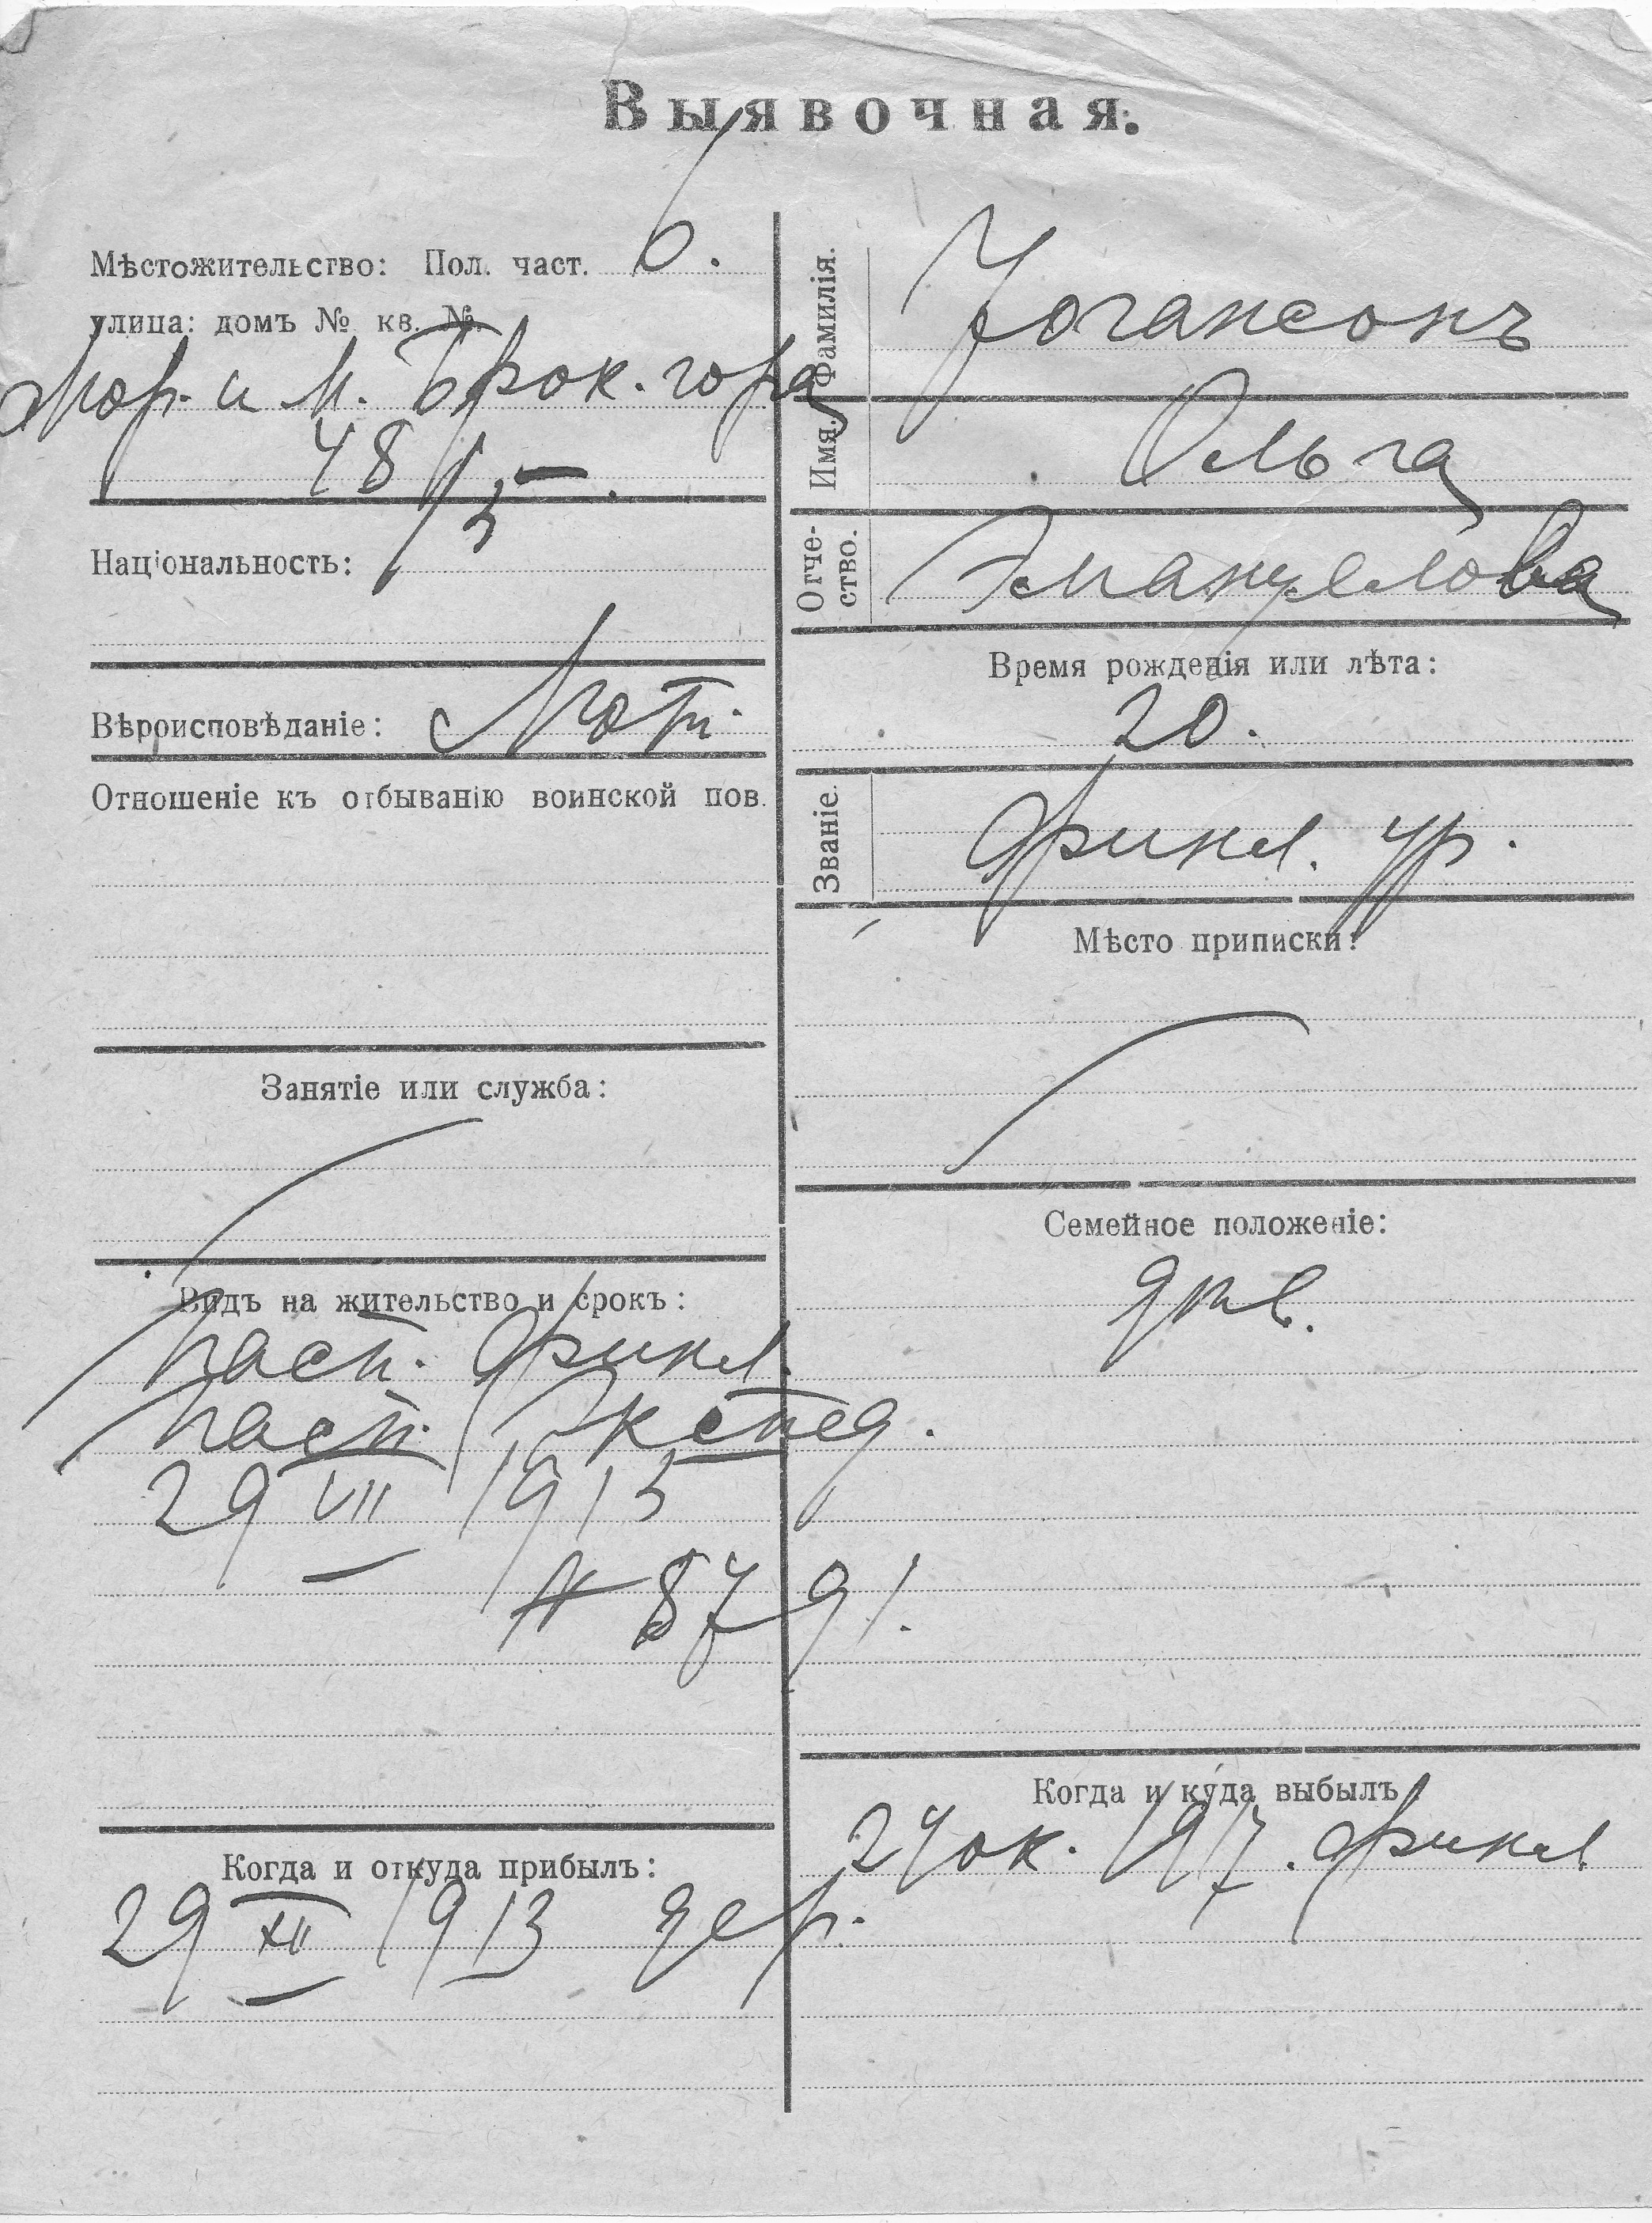 Выявочная.
Мѣстожительство: Пол. част. 6.
улица: домъ № кв. №.
Мор. и М. Брок. гора
48/3 —.
Національность:
Вѣроисповѣданіе: Лют.
Отношеніе къ отбыванію воинской пов.
Занятіе или служба:
Видъ на жительство и срокъ:
Пасп. Финл.
Пасп. Экспед.
29 VII 1913
№ 8791.
Когда и откуда прибылъ:
29 XII 1913 дер.
Фамилія. Іогансонъ
Имя. Ольга
Отчество. Эмануелова
Время рожденія или лѣта:
20.
Званіе. Финл. ур.
Мѣсто приписки:
Семейное положеніе:
дѣв.
Когда и куда выбылъ
24 ок. 1917. Финл.